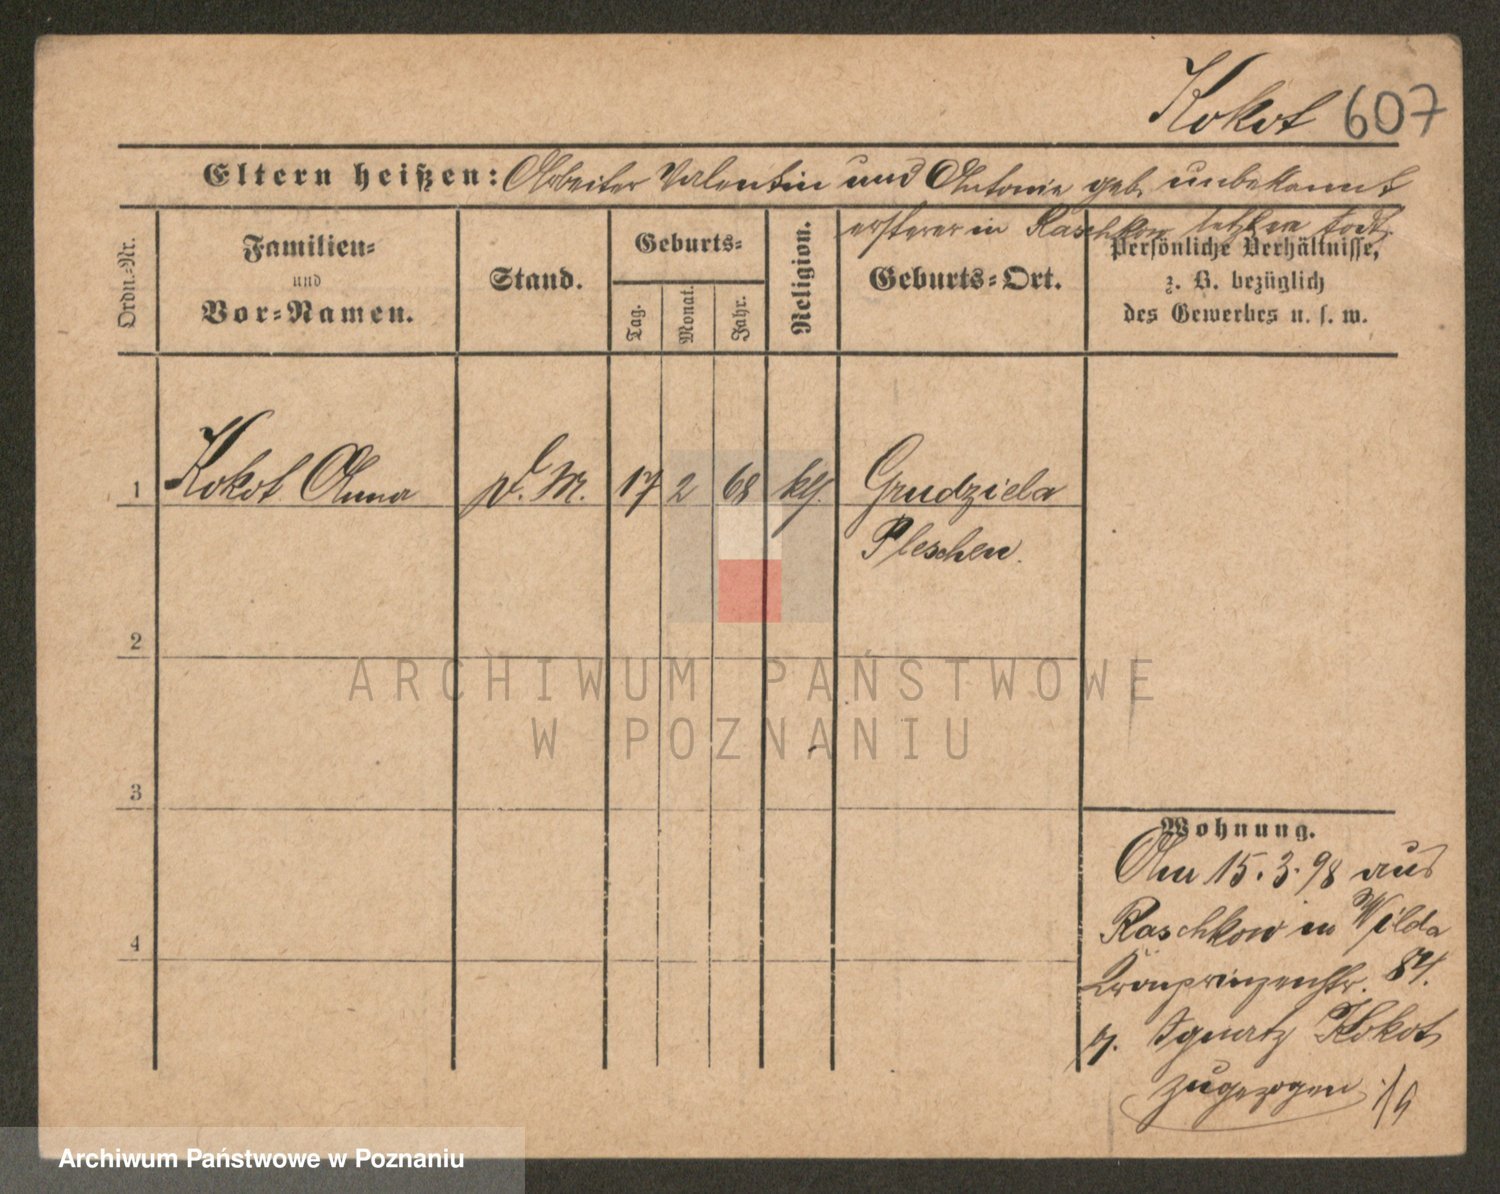 Kokot 607
Eltern heißen: Arbeiter Valentin und Antonie geb. unbekannt
ersterer in Raschkow letztere todt.
Ordn.-Nr.
Familien-
und
Vor-Namen.
Stand.
Geburts-
Tag.
Monat.
Jahr.
Religion.
Geburts-Ort.
Persönliche Verhältnisse,
z. B. bezüglich
des Gewerbes u. s. w.
1 Kokot Anna d. M. 17 2 68 kth. Grudziela
Pleschen.
2
3
4
Wohnung.
Am 15.3.98 aus
Raschkow in Wilda
Kronprinzenstr. 84.
z. Ignatz Kokot
zugezogen
ARCHIWUM PAŃSTWOWE
W POZNANIU
Archiwum Państwowe w Poznaniu